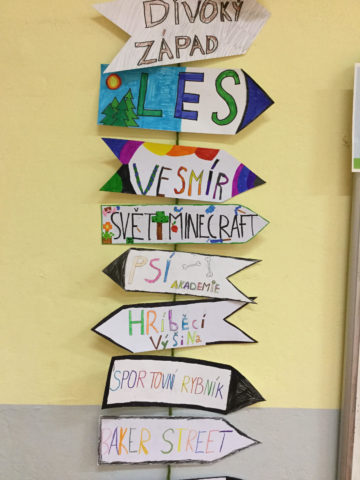 DIVOKÝ
ZÁPAD
LES
VESMÍR
SVĚT MINECRAFT
PSÍ
AKADEMIE
HŘÍBĚCÍ
VÝŠINA
SPORTOVNÍ RYBNÍK
BAKER STREET